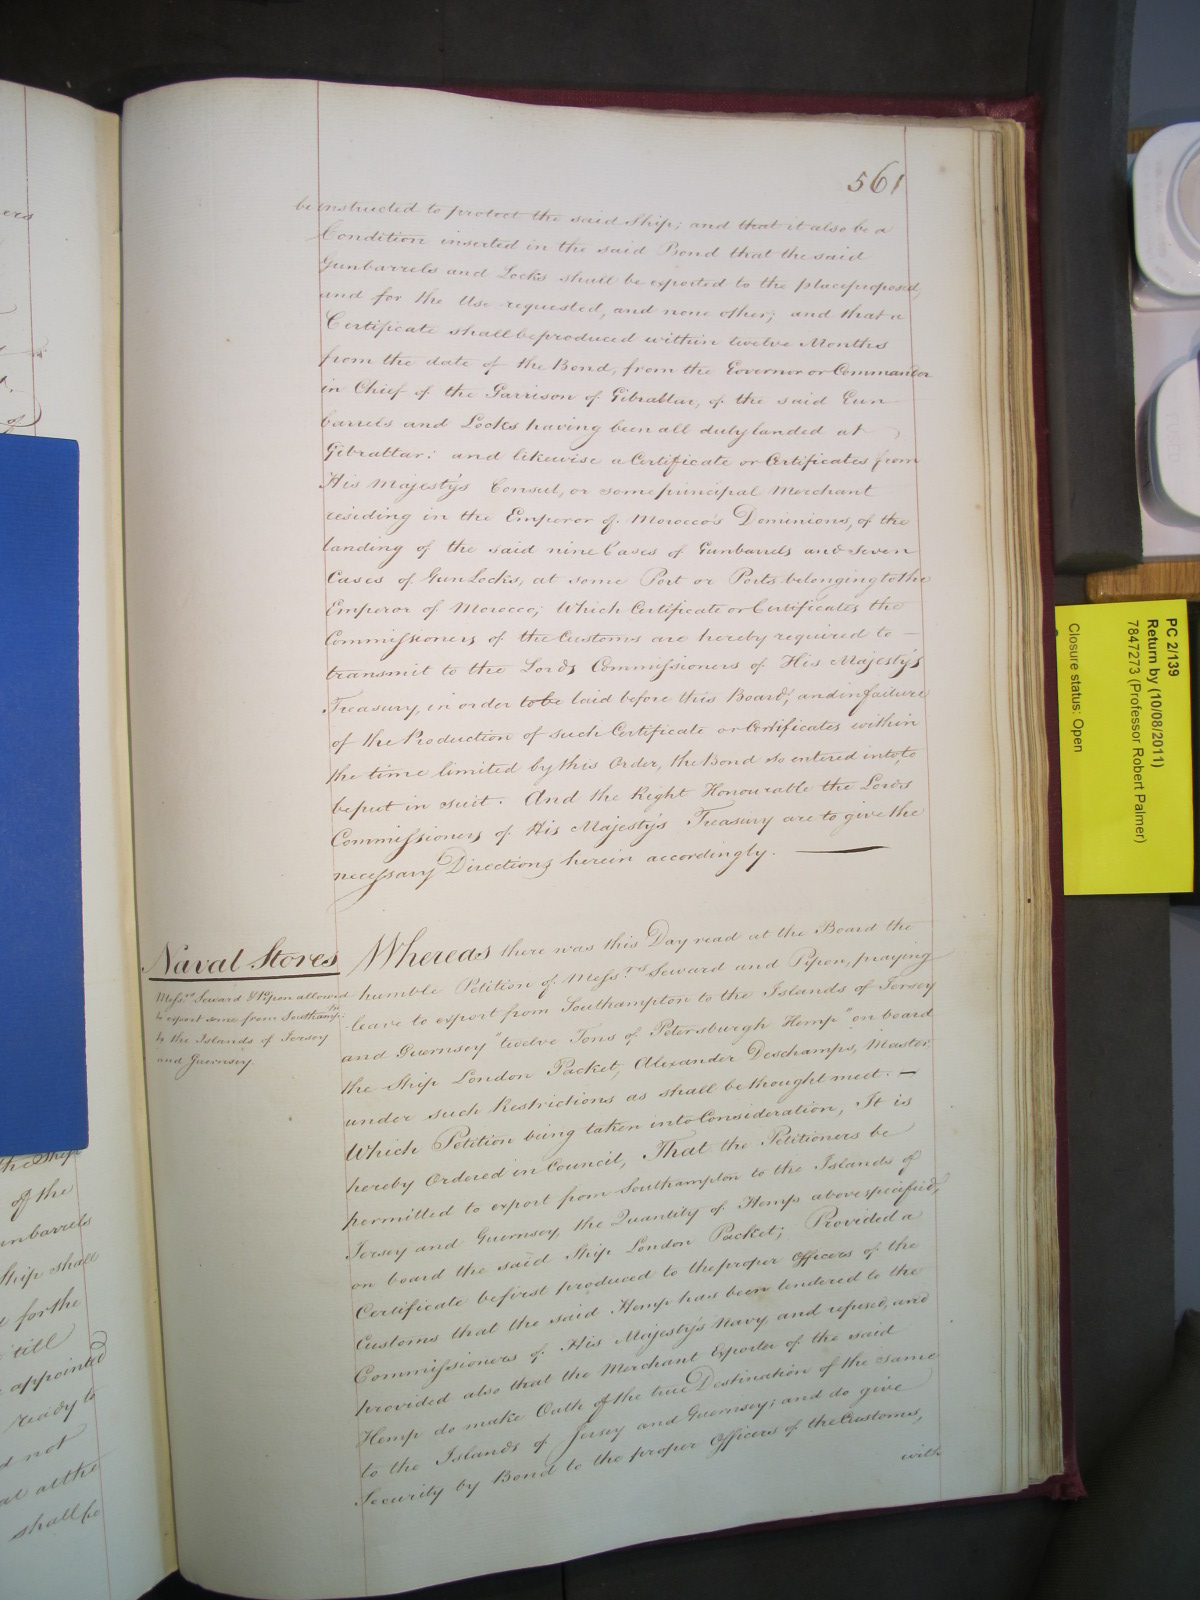 561
be instructed to protect the said Ship; and that it also be a
Condition inserted in the said Bond that the said
Gunbarrels and Locks shall be exported to the place proposed,
and for the Use requested, and none other; and that a
Certificate shall be produced within twelve Months
from the date of the Bond, from the Governor or Commander
in Chief of the Garrison of Gibraltar, of the said Gun
barrels and Locks having been all duly landed at
Gibraltar: and likewise a Certificate or Certificates from
His Majesty's Consul, or some principal Merchant
residing in the Emperor of Morocco's Dominions, of the
landing of the said nine Cases of Gunbarrels and seven
Cases of Gun Locks, at some Port or Ports belonging to the
Emperor of Morocco; Which Certificate or Certificates the
Commissioners of the Customs are hereby required to —
transmit to the Lords Commissioners of His Majesty's
Treasury, in order to be laid before this Board; and in failure
of the Production of such Certificate or Certificates within
the time limited by this Order, the Bond so entered into, to
be put in suit. And the Right Honourable the Lords
Commissioners of His Majesty's Treasury are to give the
necessary Directions herein accordingly. —
Naval Stores
Mess.rs Seward & Pipon allowed
to export some from Southampt.n
to the Islands of Jersey
and Guernsey.
Whereas there was this Day read at the Board the
humble Petition of Mess.rs Seward and Pipon, praying
leave to export from Southampton to the Islands of Jersey
and Guernsey "twelve Tons of Petersburgh Hemp" on board
the Ship London Packet, Alexander Deschamps, Master,
under such Restrictions as shall be thought meet. —
Which Petition being taken into Consideration, It is
hereby Ordered in Council, That the Petitioners be
permitted to export from Southampton to the Islands of
Jersey and Guernsey, the Quantity of Hemp above specified,
on board the said Ship London Packet; Provided a
Certificate be first produced to the proper Officers of the
Customs that the said Hemp has been tendered to the
Commissioners of His Majesty's Navy and refused, and
provided also that the Merchant Exporter of the said
Hemp do make Oath of the true Destination of the same
to the Islands of Jersey and Guernsey; and do give
Security by Bond to the proper Officers of the Customs,
with
the Ship
of the
unbarrels
Ship shall
for the
till
appointed
ready to
d not
at the
shall be
PC 2/139
Return by (10/08/2011)
7847273 (Professor Robert Palmer)
Closure status: Open